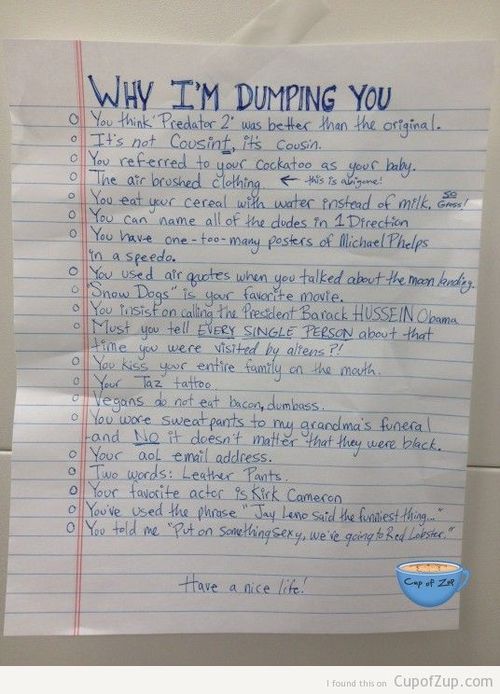 WHY I'M DUMPING YOU
You think 'Predator 2' was better than the original.
It's not Cousint, it's cousin.
You referred to your cockatoo as your baby.
The air brushed clothing ← this is a bigone!
You eat your cereal with water instead of milk. SO Gross!
You can name all of the dudes in 1 Direction
You have one-too-many posters of Michael Phelps
in a speedo.
You used air quotes when you talked about the moon landing.
"Snow Dogs" is your favorite movie.
You insist on calling the President Barack HUSSEIN Obama
Must you tell EVERY SINGLE PERSON about that
time you were visited by aliens?!
You kiss your entire family on the mouth.
Your Taz tattoo.
Vegans do not eat bacon, dumbass.
You wore sweatpants to my grandma's funeral
and NO it doesn't matter that they were black.
Your aol email address.
Two words: Leather Pants.
Your favorite actor is Kirk Cameron
You've used the phrase "Jay Leno said the funniest thing..."
You told me "Put on something sexy, we're going to Red Lobster."
Have a nice life!
Cup of Zup
I found this on CupofZup.com